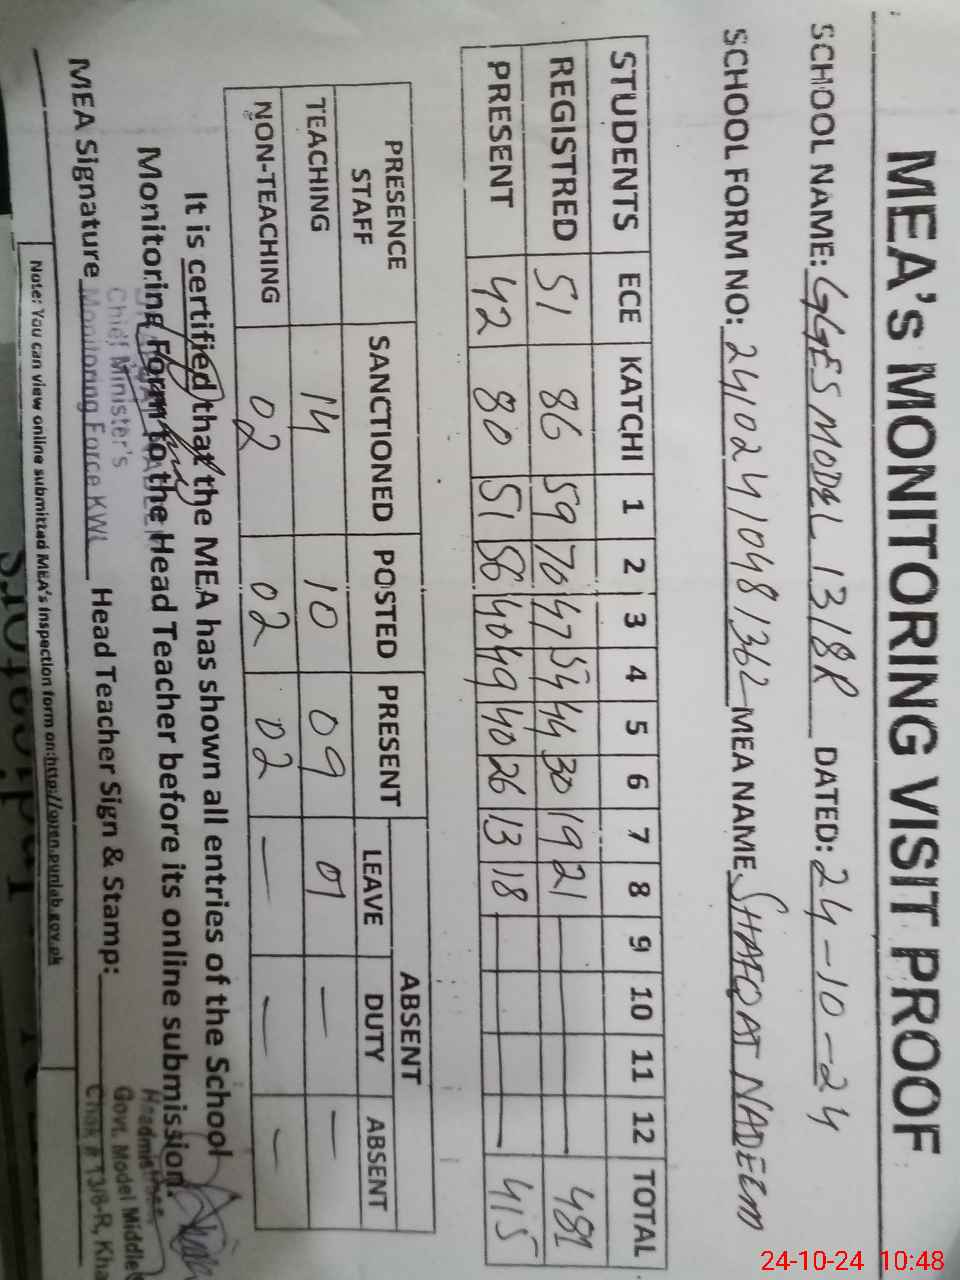 MEA's MONITORING VISIT PROOF
SCHOOL NAME: GGES MODEL 13/8R DATED: 24-10-24
SCHOOL FORM NO: 241024104481362 MEA NAME SHAFQAT NADEEM
STUDENTS ECE KATCHI 1 2 3 4 5 6 7 8 9 10 11 12 TOTAL
REGISTRED 51 86 59 70 47 54 44 30 19 21 — 481
PRESENT 42 80 51 56 40 49 40 26 13 18 — 415
PRESENCE STAFF SANCTIONED POSTED PRESENT ABSENT
LEAVE DUTY ABSENT
TEACHING 14 10 09 01 — —
NON-TEACHING 02 02 02 — — —
It is certified that the MEA has shown all entries of the School
Monitoring Form to the Head Teacher before its online submission.
Chief Minister's
Monitoring Force KWL
MEA Signature Head Teacher Sign & Stamp:
Headmistress
Govt. Model Middle
Chak # 13/8-R, Kha
Note: You can view online submitted MEA's inspection form on:http://open.punjab.gov.pk
24-10-24 10:48